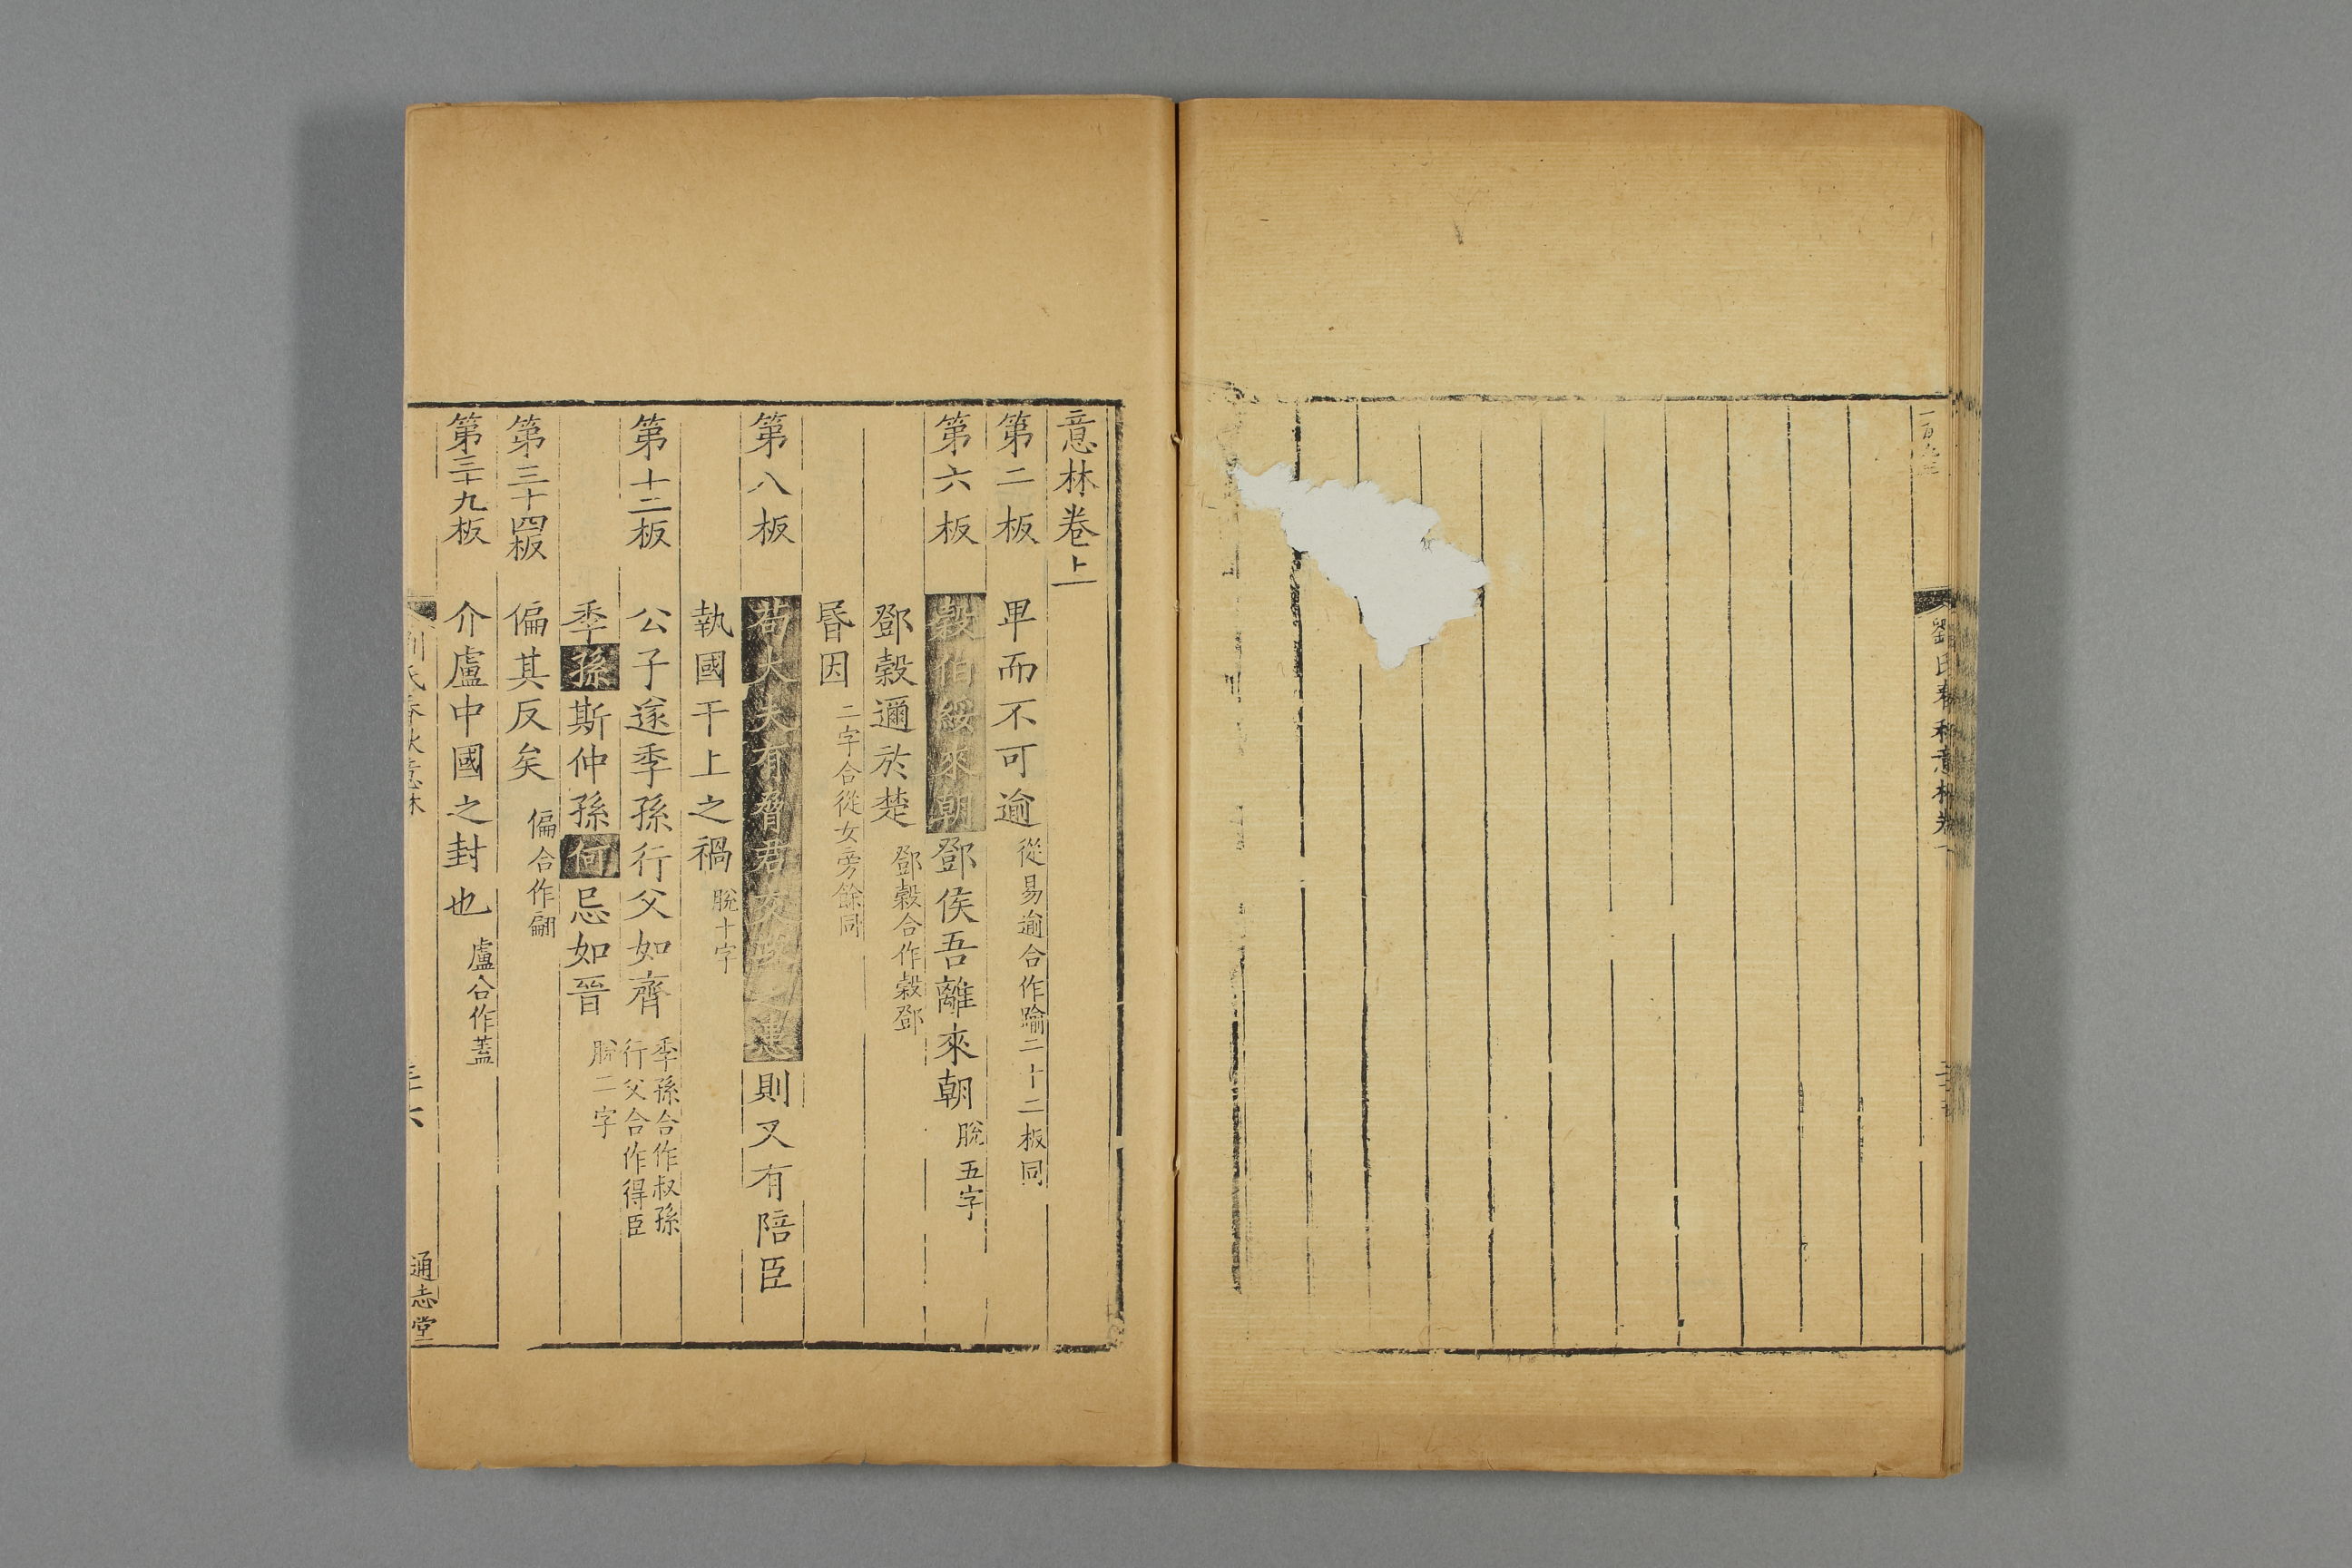 劉氏春秋意林卷
意林卷上
第二板 卑而不可逾 從易逾合作踰二十二板同
第六板 穀伯綏來朝鄧侯吾離來朝 脫五字
鄧穀邇於楚 鄧穀合作穀鄧
昬因 二字合從女旁餘同
第八板 苟大夫有脅君
則又有陪臣
執國干上之禍 脫十字
第十二板 公子遂季孫行父如齊 季孫合作叔孫行父合作得臣
季孫斯仲孫何忌如晉 脫二字
第三十四板 偏其反矣 偏合作翩
第三十九板 介盧中國之封也 盧合作葢
劉氏春秋意林
通志堂